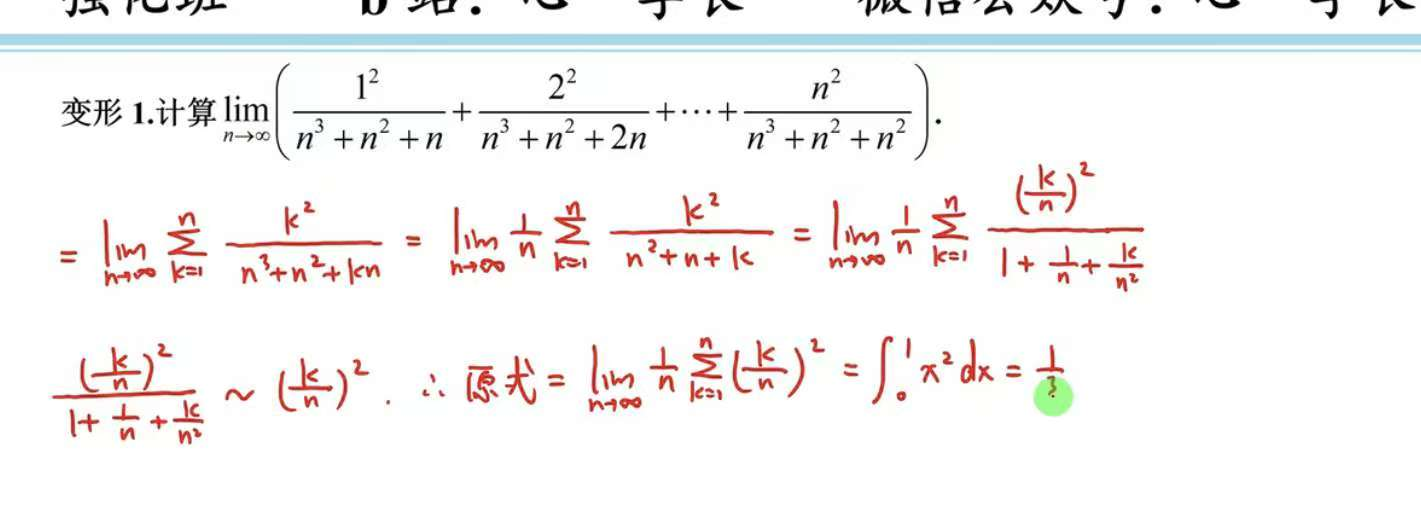 变形 1.计算 lim_{n→∞} ( 1²/(n³+n²+n) + 2²/(n³+n²+2n) + ⋯ + n²/(n³+n²+n²) ).
= lim_{n→∞} ∑_{k=1}^{n} k²/(n³+n²+kn) = lim_{n→∞} 1/n ∑_{k=1}^{n} k²/(n²+n+k) = lim_{n→∞} 1/n ∑_{k=1}^{n} (k/n)²/(1+1/n+k/n²)
(k/n)²/(1+1/n+k/n²) ~ (k/n)². ∴ 原式 = lim_{n→∞} 1/n ∑_{k=1}^{n} (k/n)² = ∫₀¹ x² dx = 1/3